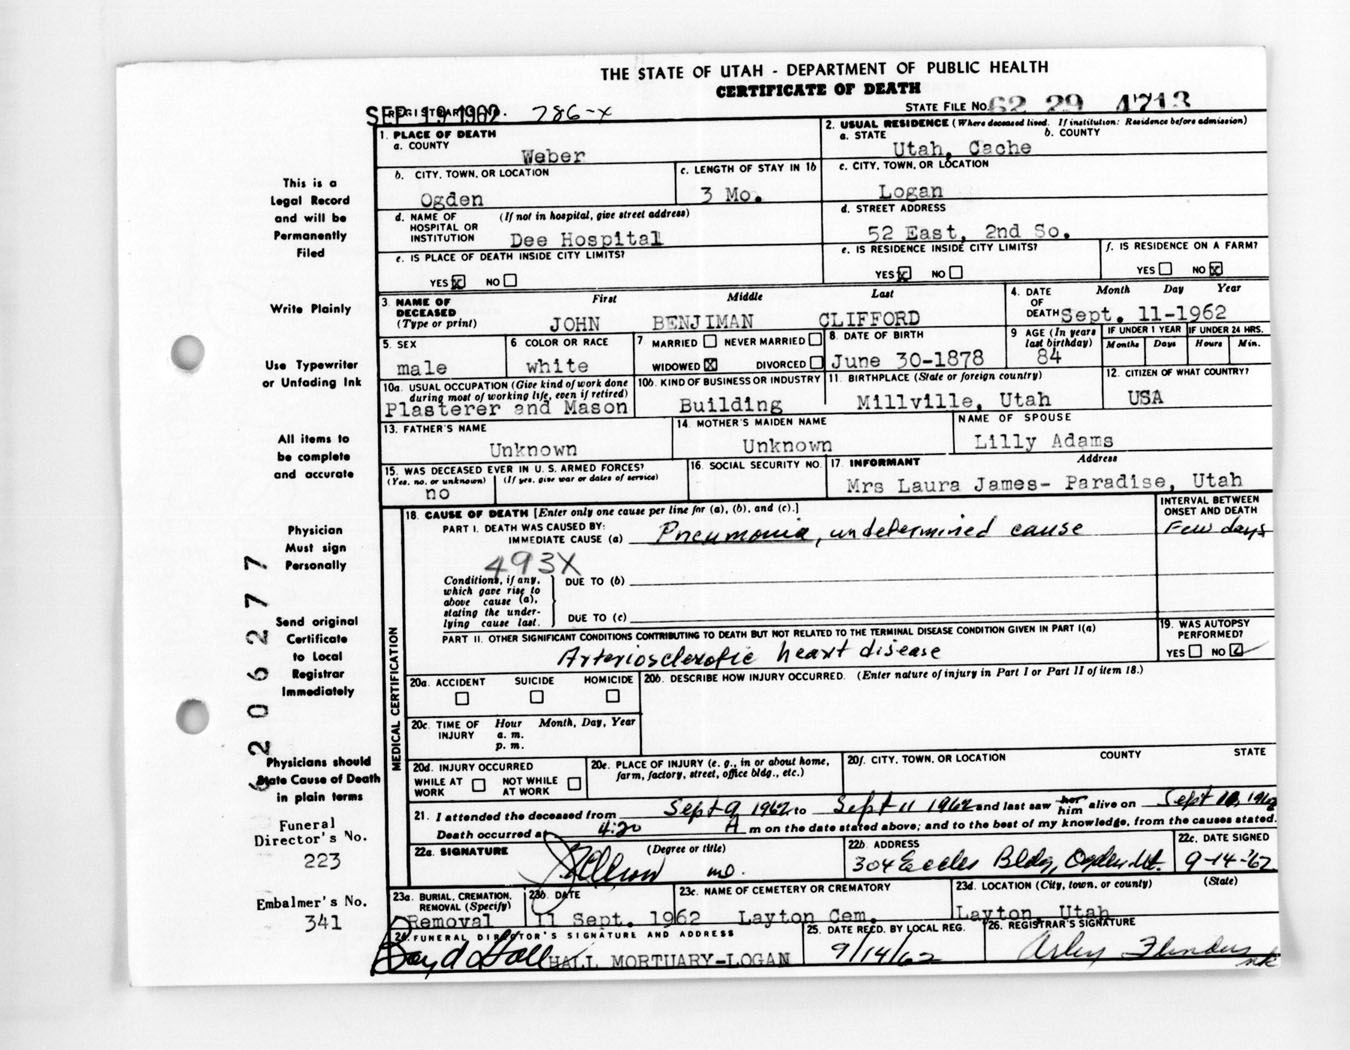 THE STATE OF UTAH - DEPARTMENT OF PUBLIC HEALTH
CERTIFICATE OF DEATH
STATE FILE No. 62 29 4713
SEP 19 1962 REGISTRAR'S NO. 786-x
1. PLACE OF DEATH
a. COUNTY
Weber
2. USUAL RESIDENCE (Where deceased lived. If institution: Residence before admission)
a. STATE b. COUNTY
Utah, Cache
b. CITY, TOWN, OR LOCATION
Ogden
c. LENGTH OF STAY IN 1b
3 Mo.
c. CITY, TOWN, OR LOCATION
Logan
d. NAME OF HOSPITAL OR INSTITUTION (If not in hospital, give street address)
Dee Hospital
d. STREET ADDRESS
52 East, 2nd So.
e. IS PLACE OF DEATH INSIDE CITY LIMITS?
YES X NO
e. IS RESIDENCE INSIDE CITY LIMITS?
YES X NO
f. IS RESIDENCE ON A FARM?
YES NO X
3. NAME OF DECEASED (Type or print)
First Middle Last
JOHN BENJIMAN CLIFFORD
4. DATE OF DEATH
Month Day Year
Sept. 11-1962
5. SEX
male
6. COLOR OR RACE
white
7. MARRIED NEVER MARRIED
WIDOWED X DIVORCED
8. DATE OF BIRTH
June 30-1878
9 AGE (In years last birthday)
84
IF UNDER 1 YEAR
Months Days
IF UNDER 24 HRS.
Hours Min.
10a. USUAL OCCUPATION (Give kind of work done during most of working life, even if retired)
Plasterer and Mason
10b. KIND OF BUSINESS OR INDUSTRY
Building
11. BIRTHPLACE (State or foreign country)
Millville, Utah
12. CITIZEN OF WHAT COUNTRY?
USA
13. FATHER'S NAME
Unknown
14. MOTHER'S MAIDEN NAME
Unknown
NAME OF SPOUSE
Lilly Adams
15. WAS DECEASED EVER IN U. S. ARMED FORCES?
(Yes, no, or unknown) (If yes, give war or dates of service)
no
16. SOCIAL SECURITY NO.
17. INFORMANT Address
Mrs Laura James- Paradise, Utah
MEDICAL CERTIFICATION
18. CAUSE OF DEATH [Enter only one cause per line for (a), (b), and (c).]
INTERVAL BETWEEN ONSET AND DEATH
PART I. DEATH WAS CAUSED BY:
IMMEDIATE CAUSE (a) Pneumonia, undetermined cause
Few days
493X
Conditions, if any, which gave rise to above cause (a), stating the underlying cause last.
DUE TO (b)
DUE TO (c)
PART II. OTHER SIGNIFICANT CONDITIONS CONTRIBUTING TO DEATH BUT NOT RELATED TO THE TERMINAL DISEASE CONDITION GIVEN IN PART I(a)
Arteriosclerotic heart disease
19. WAS AUTOPSY PERFORMED?
YES NO ✓
20a. ACCIDENT SUICIDE HOMICIDE
20b. DESCRIBE HOW INJURY OCCURRED. (Enter nature of injury in Part I or Part II of item 18.)
20c. TIME OF INJURY Hour Month, Day, Year
a. m.
p. m.
20d. INJURY OCCURRED
WHILE AT WORK NOT WHILE AT WORK
20e. PLACE OF INJURY (e. g., in or about home, farm, factory, street, office bldg., etc.)
20f. CITY, TOWN, OR LOCATION COUNTY STATE
21. I attended the deceased from Sept 9 1962, to Sept 11 1962 and last saw her him alive on Sept 10, 1962
Death occurred at 4:20 A m on the date stated above; and to the best of my knowledge, from the causes stated.
22a. SIGNATURE (Degree or title)
MD.
22b. ADDRESS
304 Eccles Bldg, Ogden Ut.
22c. DATE SIGNED
9-14-'62
23a. BURIAL, CREMATION, REMOVAL (Specify)
Removal
23b. DATE
11 Sept. 1962
23c. NAME OF CEMETERY OR CREMATORY
Layton Cem.
23d. LOCATION (City, town, or county) (State)
Layton, Utah
24. FUNERAL DIRECTOR'S SIGNATURE AND ADDRESS
Boyd Hall HALL MORTUARY-LOGAN
25. DATE RECD. BY LOCAL REG.
9/14/62
26. REGISTRAR'S SIGNATURE
This is a
Legal Record
and will be
Permanently
Filed
Write Plainly
Use Typewriter
or Unfading Ink
All items to
be complete
and accurate
Physician
Must sign
Personally
Send original
Certificate
to Local
Registrar
Immediately
Physicians should
State Cause of Death
in plain terms
Funeral
Director's No.
223
Embalmer's No.
341
6206277